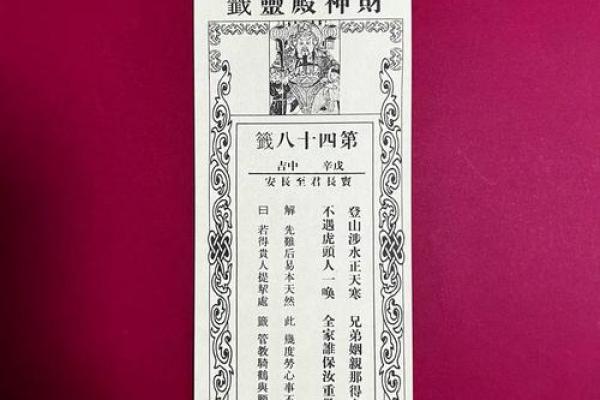 財神殿靈籤
第四十八籤
戌辛 中吉
竇長君至長安
登山涉水正天寒 兄弟姻親那得
不遇虎頭人一喚 全家誰保汝重
解 先難后易本天然 此 幾度勞心事不
曰 若得貴人提挈處 籤 管教騎鶴與